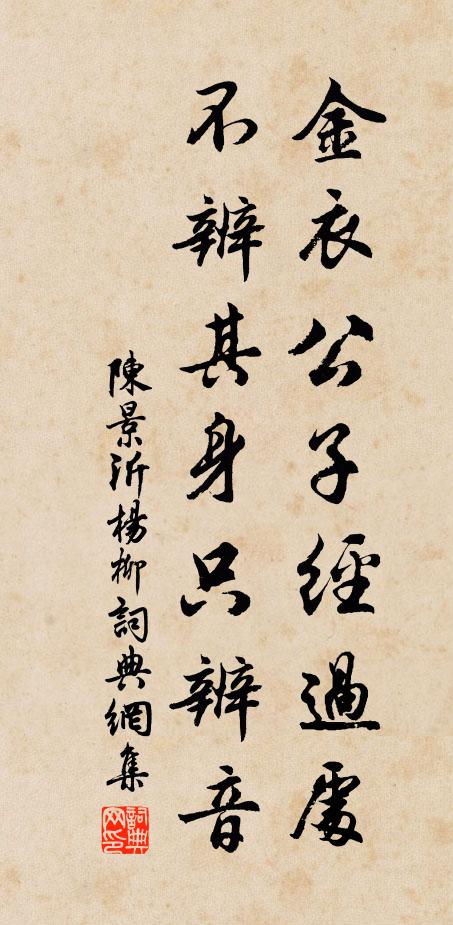 金衣公子經過處
不辨其身只辨音
陳景沂楊柳詞典網集
詞典網印